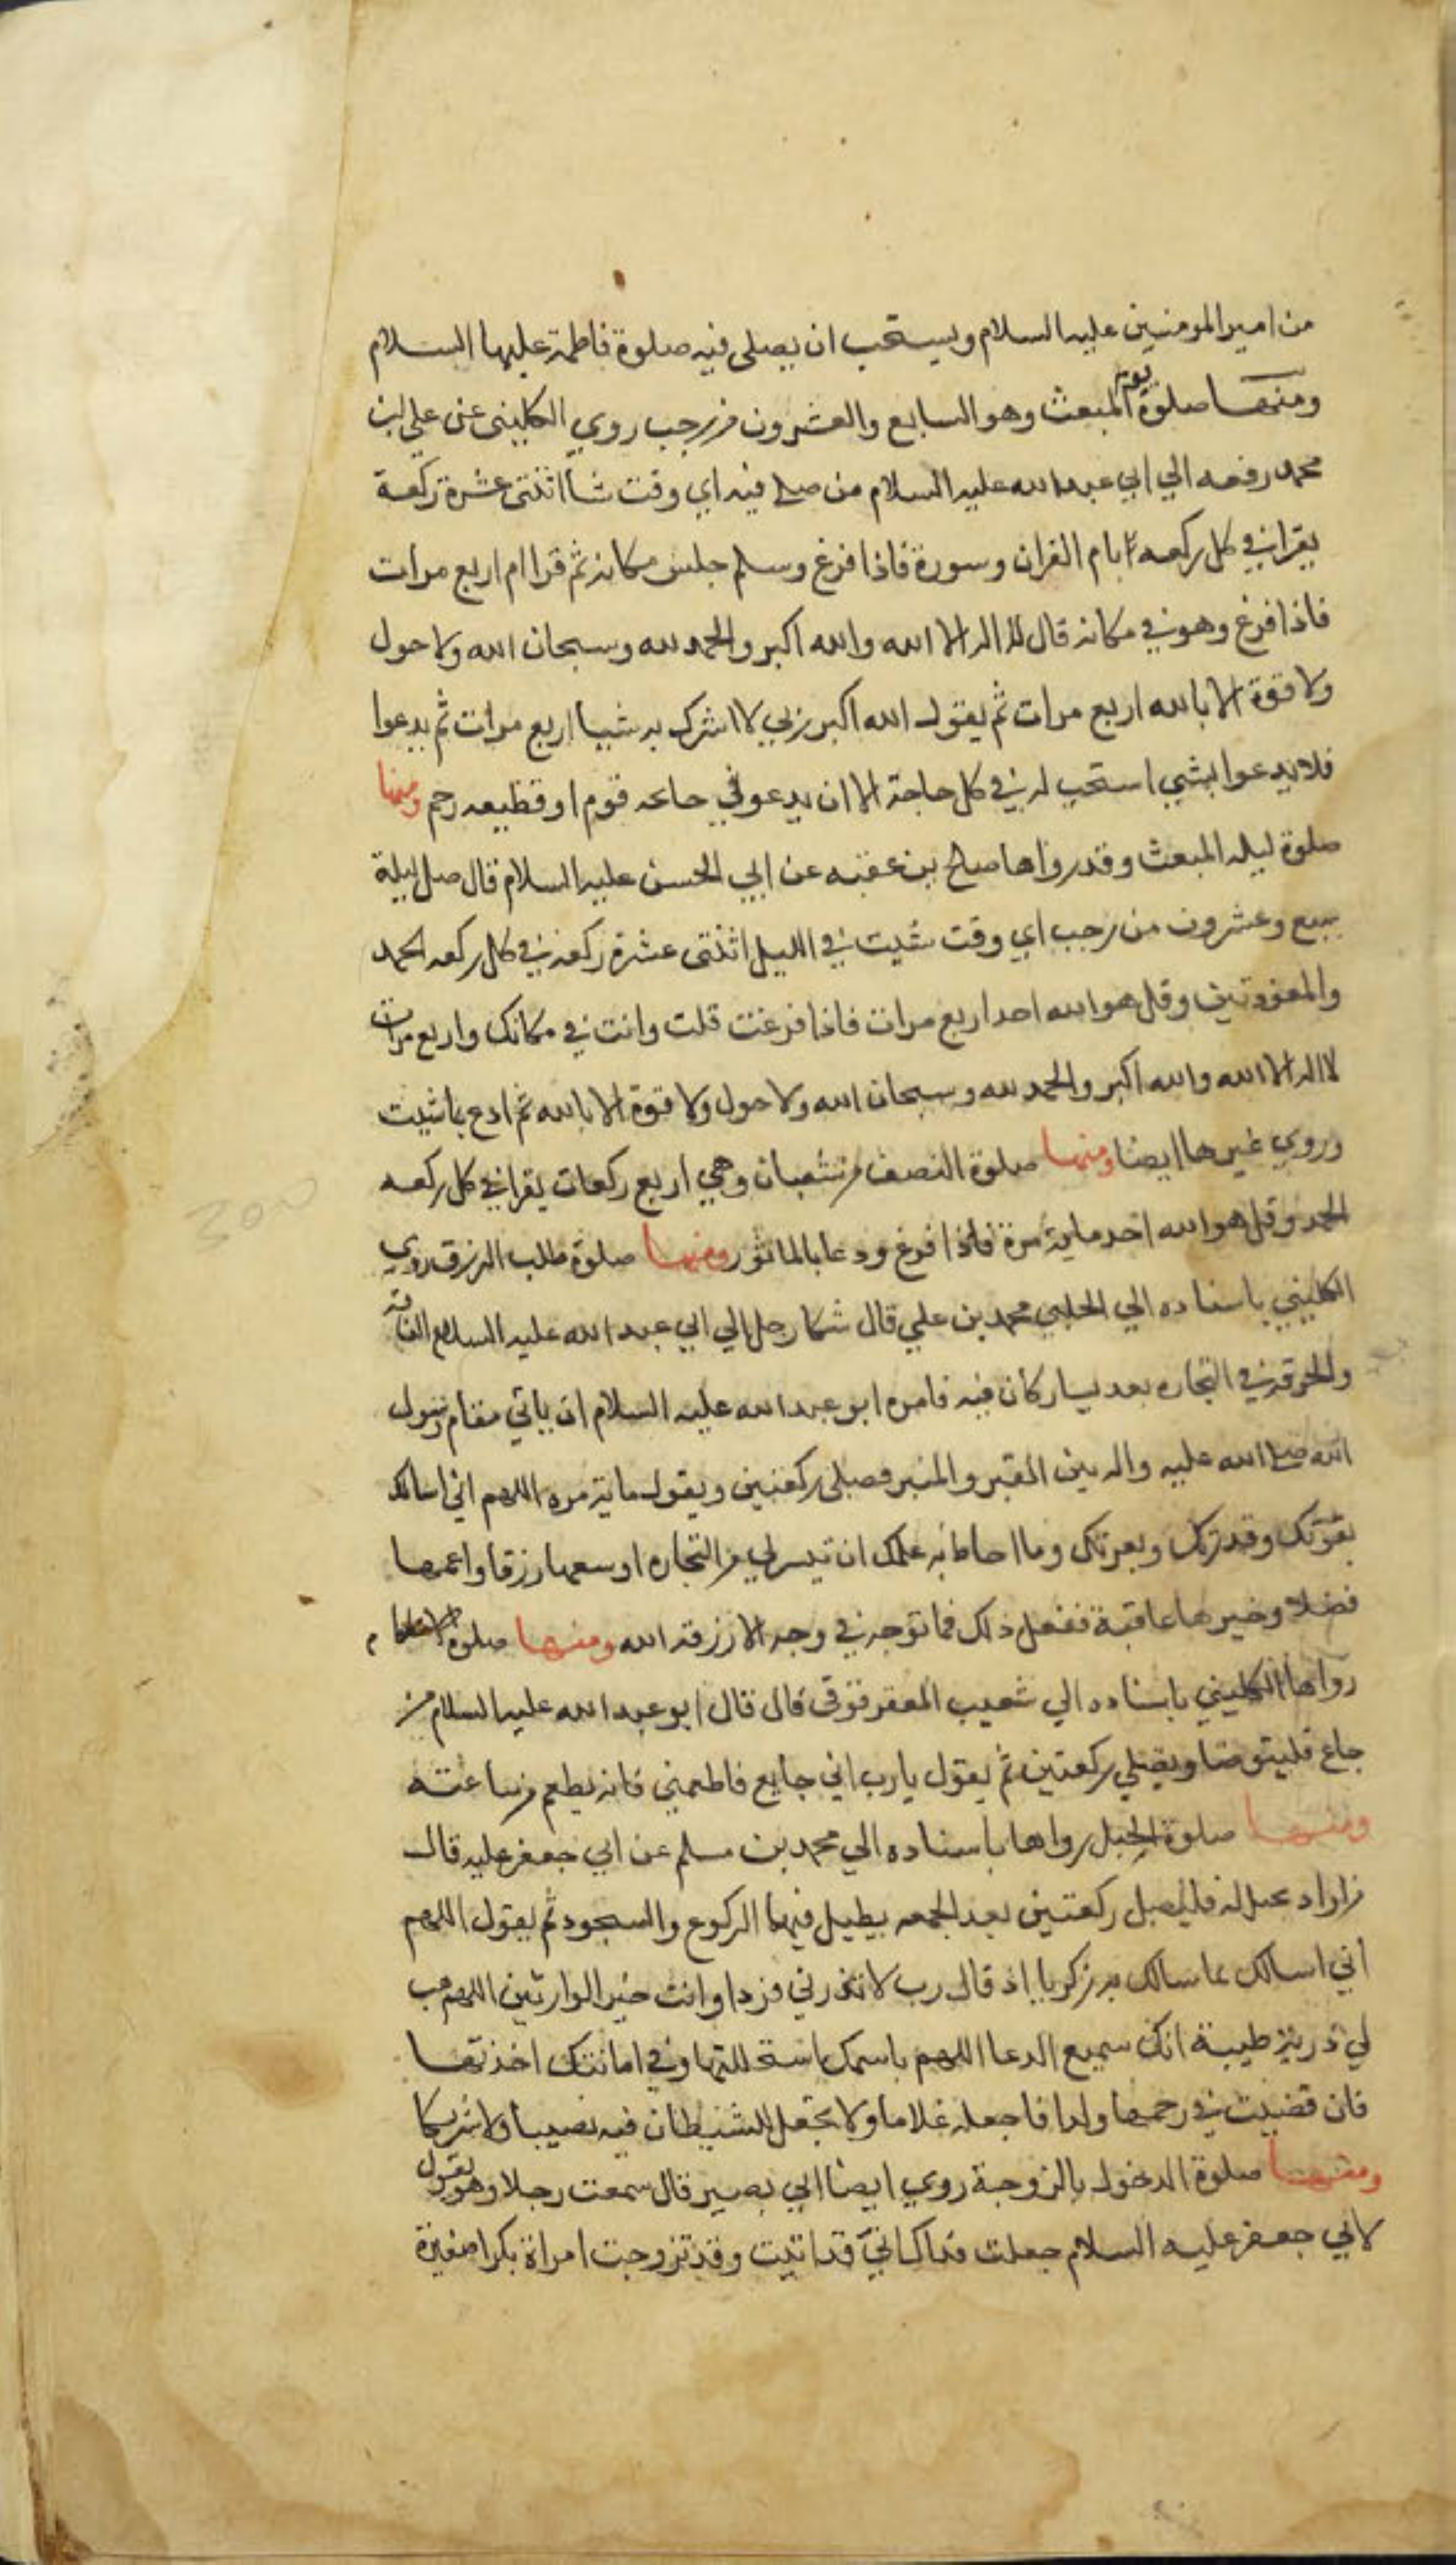 من امير المومنين عليه السلام ويستحب ان يصلى فيه صلوة فاطمة عليها السلام
ومنها صلوة يوم المبعث وهو السابع والعشرون من رجب روي الكليني عن علي بن
محمد رفعه الي ابي عبد الله عليه السلام من صلى فيه اي وقت شا اثنتى عشرة ركعة
يقرا في كل ركعه بام القران وسورة فاذا فرغ وسلم جلس مكانه ثم قرا ام اربع مرات
فاذا فرغ وهو في مكانه قال لا اله الا الله والله اكبر والحمد لله وسبحان الله ولا حول
ولا قوة الا بالله اربع مرات ثم يقول الله اكبر ربي لا اشرك به شيا اربع مرات ثم يدعوا
فلا يدعوا بشي استحب له في كل حاجة الا ان يدعو في حاىحه قوم او قطيعه رحم ومنها
صلوة ليله المبعث وقد رواها صلح بن عقبه عن ابي الحسن عليه السلام قال صل ليلة
سبع وعشرون من رجب اي وقت شيت في الليل اثنتى عشرة ركعه في كل ركعه الحمد
والمعوذتين وقل هو الله احد اربع مرات فاذا فرغت قلت وانت في مكانك واربع مرات
لا اله الا الله والله اكبر والحمد لله وسبحان الله ولا حول ولا قوة الا بالله ثم ادع بما شيت
وروي غيرها ايضا ومنها صلوة النصف من شعبان وهي اربع ركعات يقرا في كل ركعه
الحمد وقل هو الله احد ماية مرة فاذا فرغ ودعا بالماثور ومنها صلوة طلب الرزق روي
الكليني باسناده الي الحلبي محمد بن علي قال شكا رجل الي ابي عبد الله عليه السلام الفاقة
والحرقه في التجاره بعد يسار كان فيه فامره ابو عبد الله عليه السلام ان ياتي مقام رسول
الله صلى الله عليه واله بين القبر والمنبر فصلى ركعتين ويقول ماية مره اللهم اني اسالك
بقوتك وقدرتك وبعزتك وما احاط به علمك ان تيسر لي من التجاره اوسعها رزقا واعمها
فضلا وخيرها عاقبة ففعل ذلك فما توجه في وجه الا رزقه الله ومنها صلوة
رواها الكليني باسناده الي شعيب العقرقوفى قال قال ابو عبد الله عليه السلام من
جاع فليتوضا ويصلي ركعتين ثم يقول يارب اني جايع فاطعمني فانه يطعم من ساعته
ومنها صلوة الحبل رواها باسناده الي محمد بن مسلم عن ابي جعفر عليه قال
من اراد يحبل له فليصل ركعتين بعد الجمعه يطيل فيها الركوع والسجود ثم يقول اللهم
اني اسالك بما سالك به زكريا اذ قال رب لا تذرني فردا وانت خير الوارثين اللهم هب
لي ذرية طيبة انك سميع الدعا اللهم باسمك استحللتها وفي امانتك اخذتها
فان قضيت في رحمها ولدا فاجعله غلاما ولا تجعل للشيطان فيه نصيبا ولا شركا
ومنها صلوة الدخول بالزوجة روي ايضا ابي بصير قال سمعت رجلا وهو يقول
لابي جعفر عليه السلام جعلت فداك اني قد اتيت وقد تزوجت امراة بكرا صغيرة